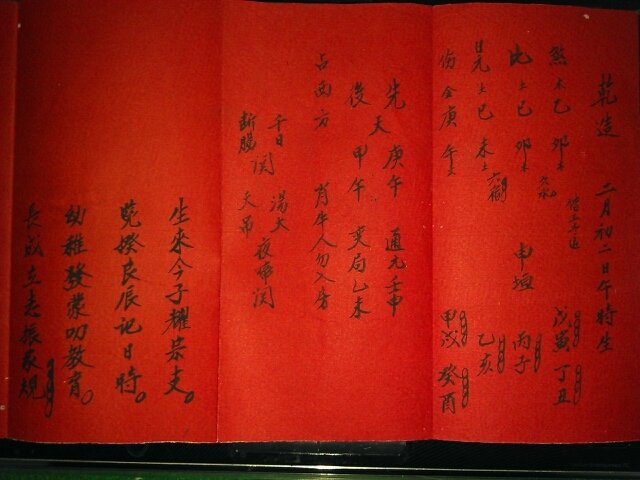 乾造 二月初二日午時生
煞木乙 卯木 戊寅 丁丑
比土己 卯木 申垣 丙子
日元土己 未土 乙亥
傷金庚 午火 甲戌 癸酉
先 庚午 通元壬申
天
後 甲午 变局乙未
占西方 肖牛人勿入房
千日 湯火 夜啼関
関
断腸 天吊
生來今子耀宗支。
揆良辰記日時。
幼稚發蒙叨教育。
長成立志振家規